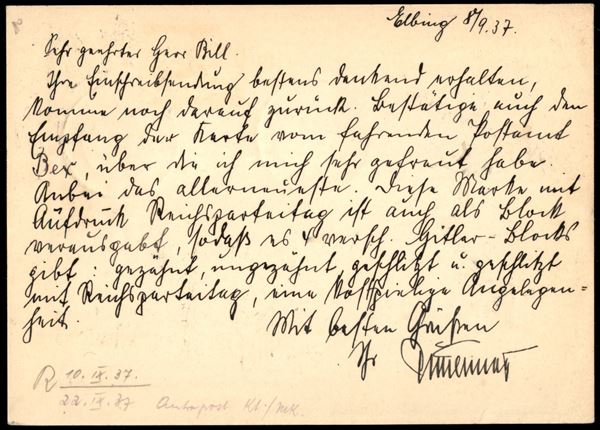 Elbing 8/9.37.
Sehr geehrter Herr Bill.
Ihre Einschreibsendung bestens dankend erhalten,
komme noch darauf zurück. Bestätige auch den
Empfang der Karte vom fahrenden Postamt
Bex, über die ich mich sehr gefreut habe.
Anbei das allerneueste. Diese Marke mit
Aufdruck Reichsparteitag ist auch als Block
verausgabt, sodaß es 4 versch. Hitler-Blocks
gibt: gezähnt, ungezähnt, geschlitzt u. geschlitzt
mit Reichsparteitag, eine kostspielige Angelegen=
heit.
Mit besten Grüßen
Ihr
R 10. IX. 37.
22. IX. 37 Autopost Kt./